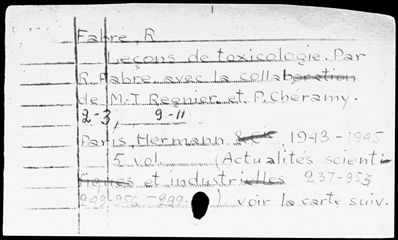 Fabre, R
Leçons de toxicologie. Par
R. Fabre avec la collaboration
de M.-T. Regnier et P. Chéramy.
2-3, 9-11
Paris, Hermann & Cie, 1943-1945
5 vol. (Actualités scienti-
fiques et industrielles 937-953
) voir la carte suiv.